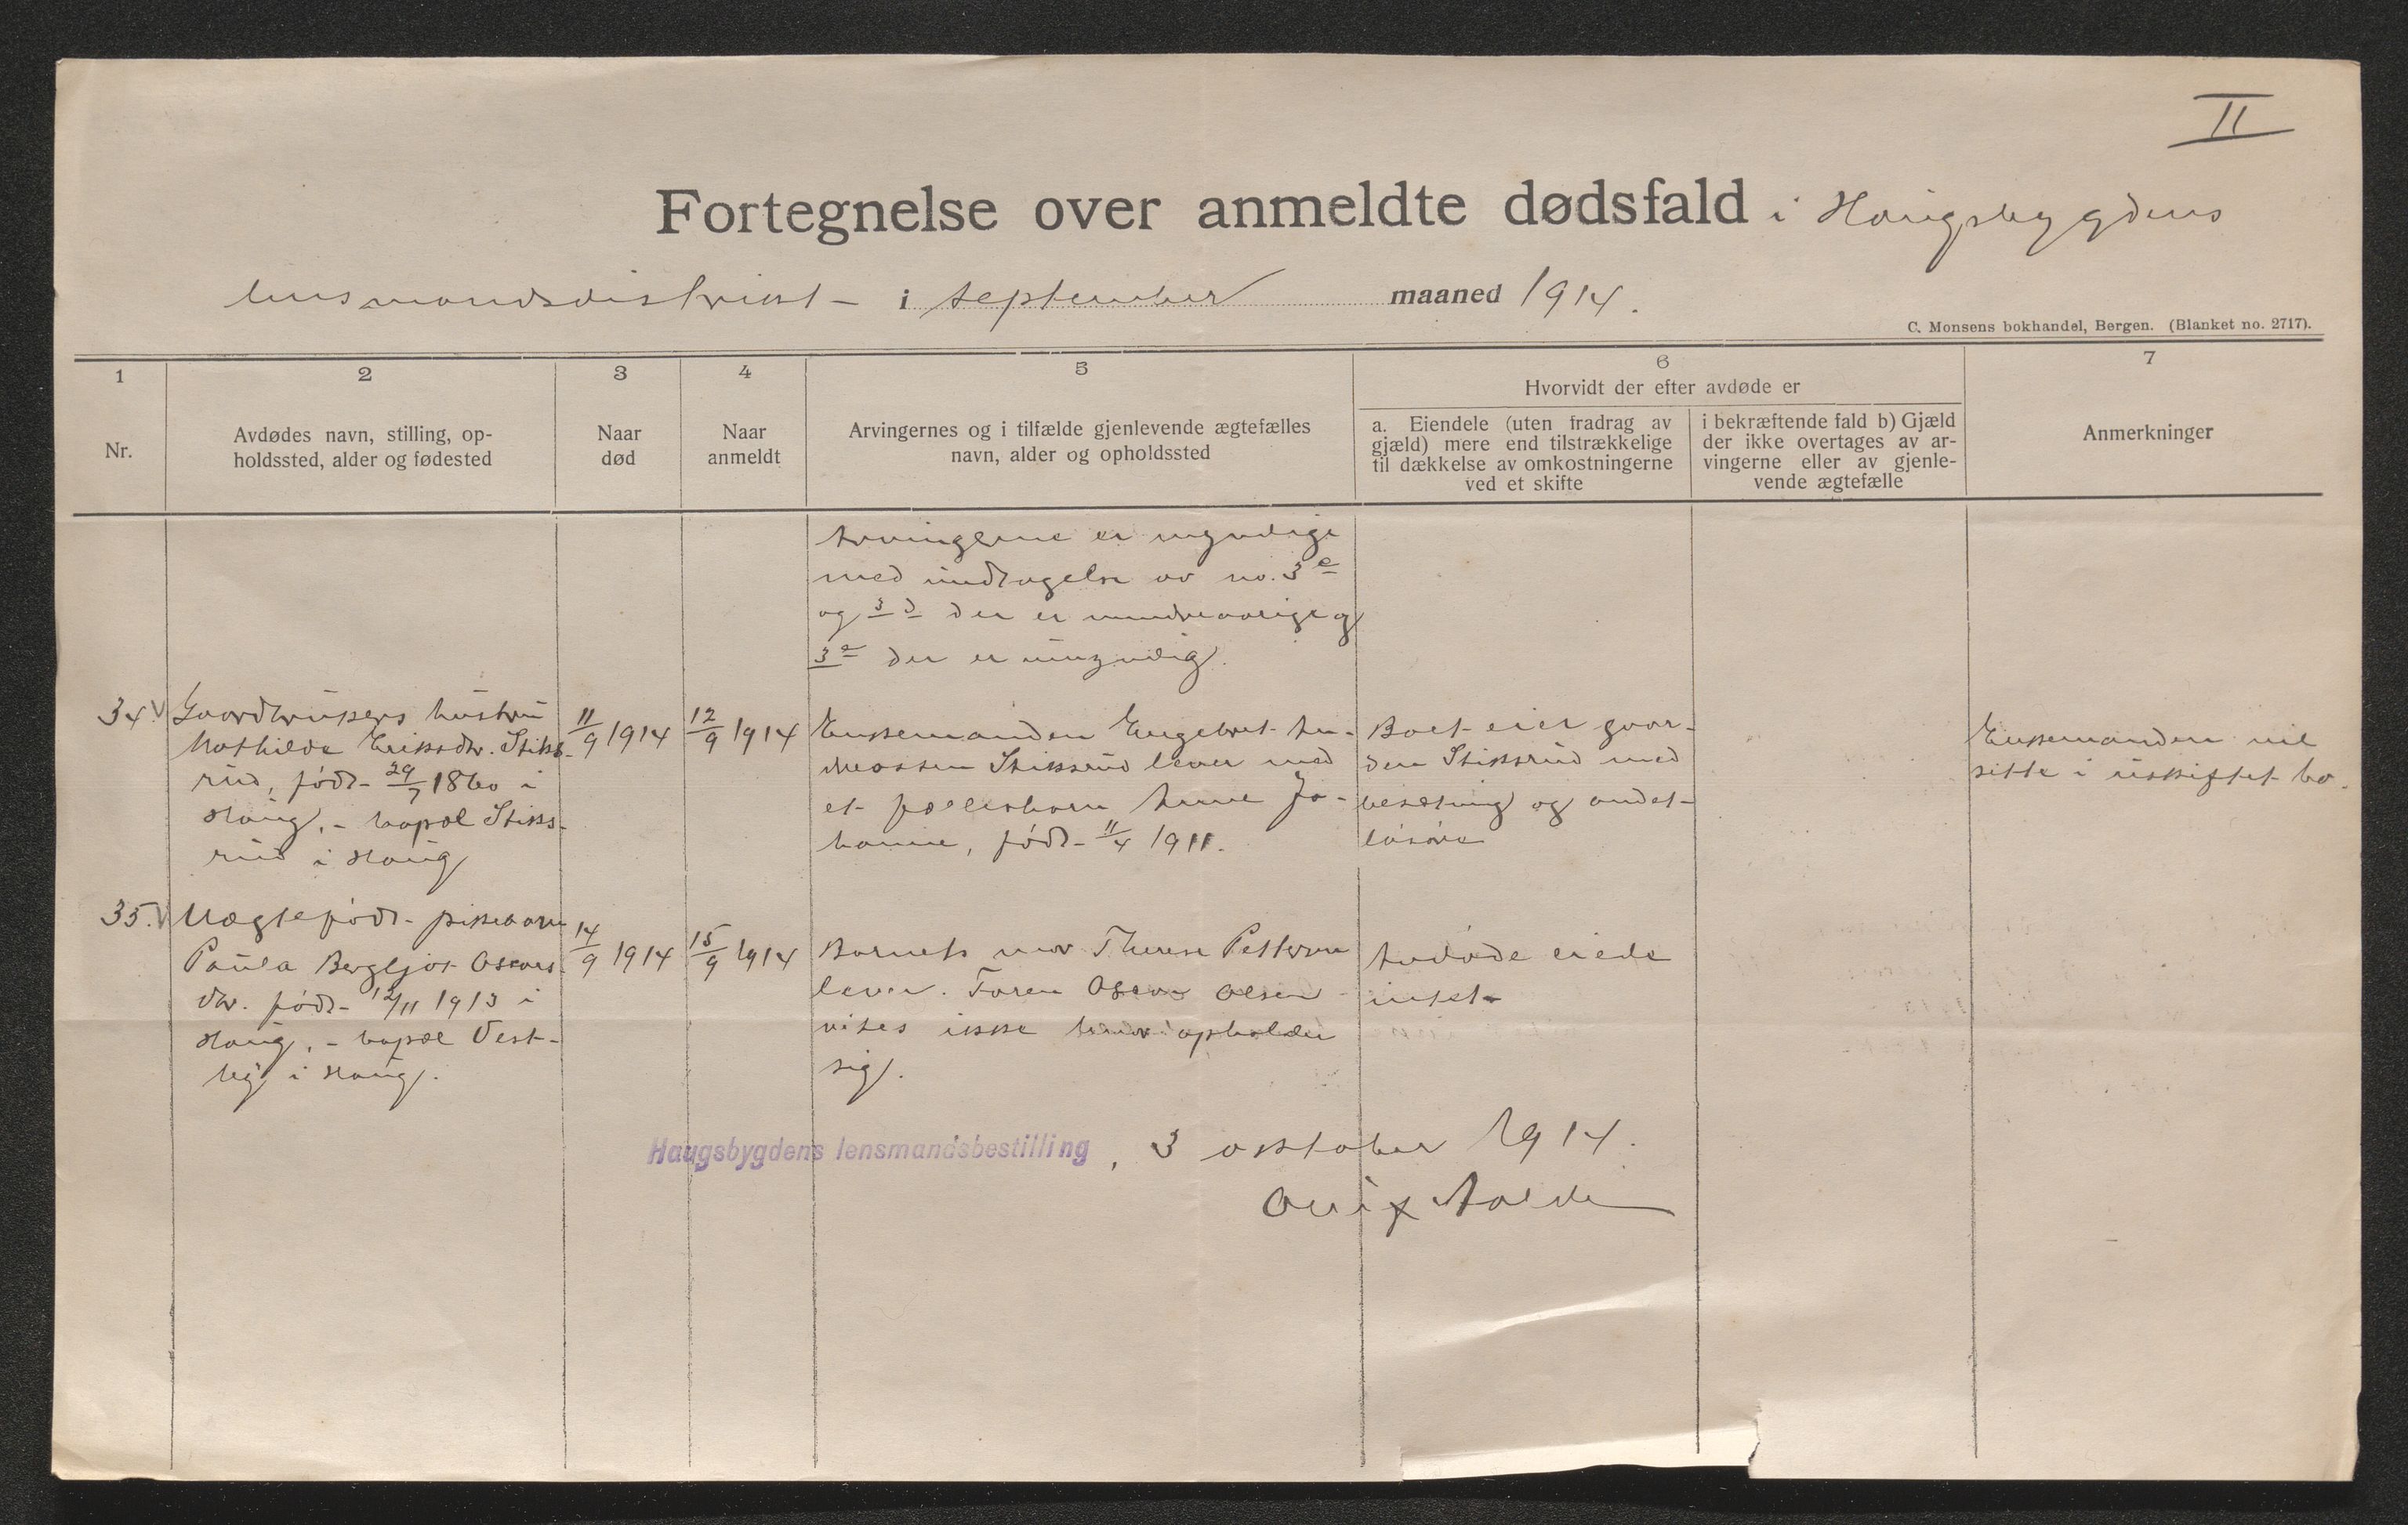 II
Fortegnelse over anmeldte dødsfald i Haugsbygdens
lensmandsdistrikt - i september maaned 1914.
C. Monsens bokhandel, Bergen. (Blanket no. 2717).
1
2
3
4
5
6
7
Nr.
Avdødes navn, stilling, op-
holdssted, alder og fødested
Naar
død
Naar
anmeldt
Arvingernes og i tilfælde gjenlevende ægtefælles
navn, alder og opholdssted
Hvorvidt der efter avdøde er
a. Eiendele (uten fradrag av
gjæld) mere end tilstrækkelige
til dækkelse av omkostningerne
ved et skifte
i bekræftende fald b) Gjæld
der ikke overtages av ar-
vingerne eller av gjenle-
vende ægtefælle
Anmerkninger
Arvingerne er myndige
med undtagelse av no. 3 e
og 3 d der er mindreaarige og
3 a der er umyndig.
34.
Gaardbrukers hustru
Mathilde Eriksdtr. Stiks-
rud, født 29/7 1860 i
Haug, - bopæl Stiks-
rud i Haug
11/9 1914
12/9 1914
Enkemanden Engebret An-
dreassen Stiksrud lever med
et fællesbarn Anne Jo-
hanne, født 11/4 1911.
Boet eier gaar-
den Stiksrud med
besætning og andet
løsøre
Enkemanden vil
sitte i uskiftet bo.
35.
Uægtefødt pikebarn
Paula Bergljot Oscars-
dtr. født 12/11 1913 i
Haug, - bopæl Vest-
by i Haug.
14/9 1914
15/9 1914
Barnets mor Therese Pettersen
lever. Faren Oscar Olsen
vites ikke hvor opholder
sig.
Avdøde eiede
intet
Haugsbygdens lensmandsbestilling, 3 oktober 1914.